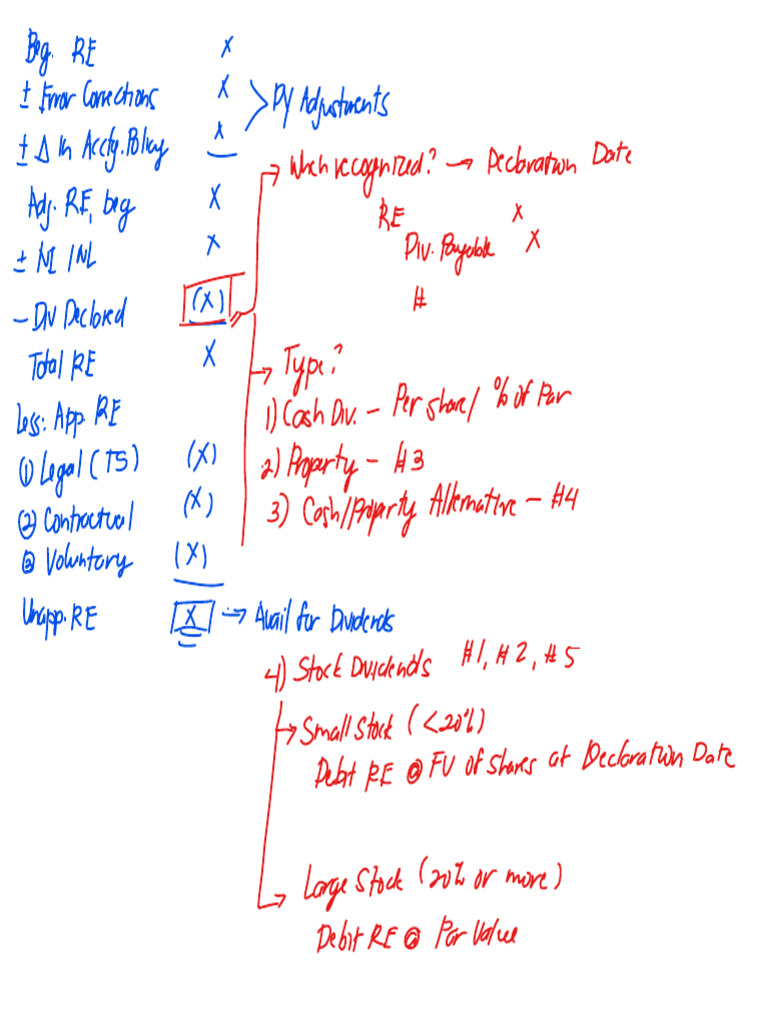 Beg. RE X
± Error Corrections X
± Δ in Acctg. Policy X
> PY Adjustments
Adj. RE, beg X
± NI / NL X
- Div Declared (X)
Total RE X
Less: App. RE
① Legal (TS) (X)
② Contractual (X)
③ Voluntary (X)
Unapp. RE X → Avail for Dividends
→ When recognized? → Declaration Date
RE X
Div. Payable X
#
→ Type?
1) Cash Div. - Per share / % of Par
2) Property - #3
3) Cash/Property Alternative - #4
4) Stock Dividends #1, #2, #5
→ Small Stock (<20%)
Debit RE @ FV of shares at Declaration Date
→ Large Stock (20% or more)
Debit RE @ Par Value